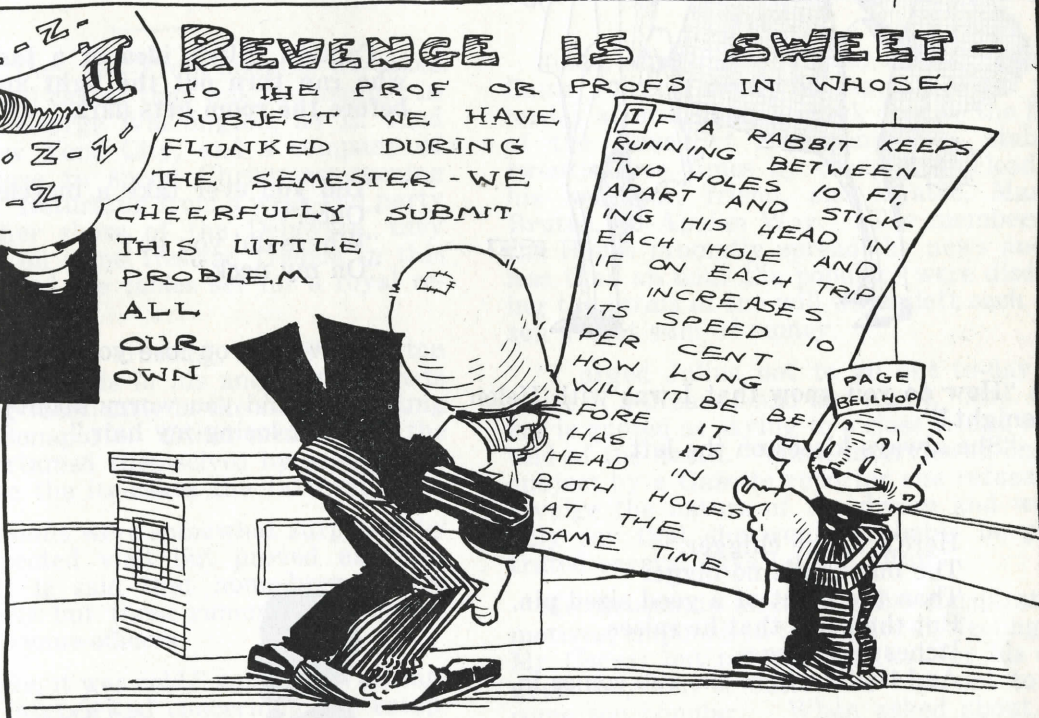 -Z-
Z
Z-Z
-Z
REVENGE IS SWEET-
TO THE PROF OR PROFS IN WHOSE
SUBJECT WE HAVE
FLUNKED DURING
THE SEMESTER-WE
CHEERFULLY SUBMIT
THIS LITTLE
PROBLEM
ALL
OUR
OWN
IF A RABBIT KEEPS
RUNNING BETWEEN
TWO HOLES 10 FT.
APART AND STICK-
ING HIS HEAD IN
EACH HOLE AND
IF ON EACH TRIP
IT INCREASES
ITS SPEED 10
PER CENT
HOW LONG
WILL IT BE BE-
FORE IT
HAS ITS
HEAD IN
BOTH HOLES
AT THE
SAME TIME
!!
PAGE
BELLHOP